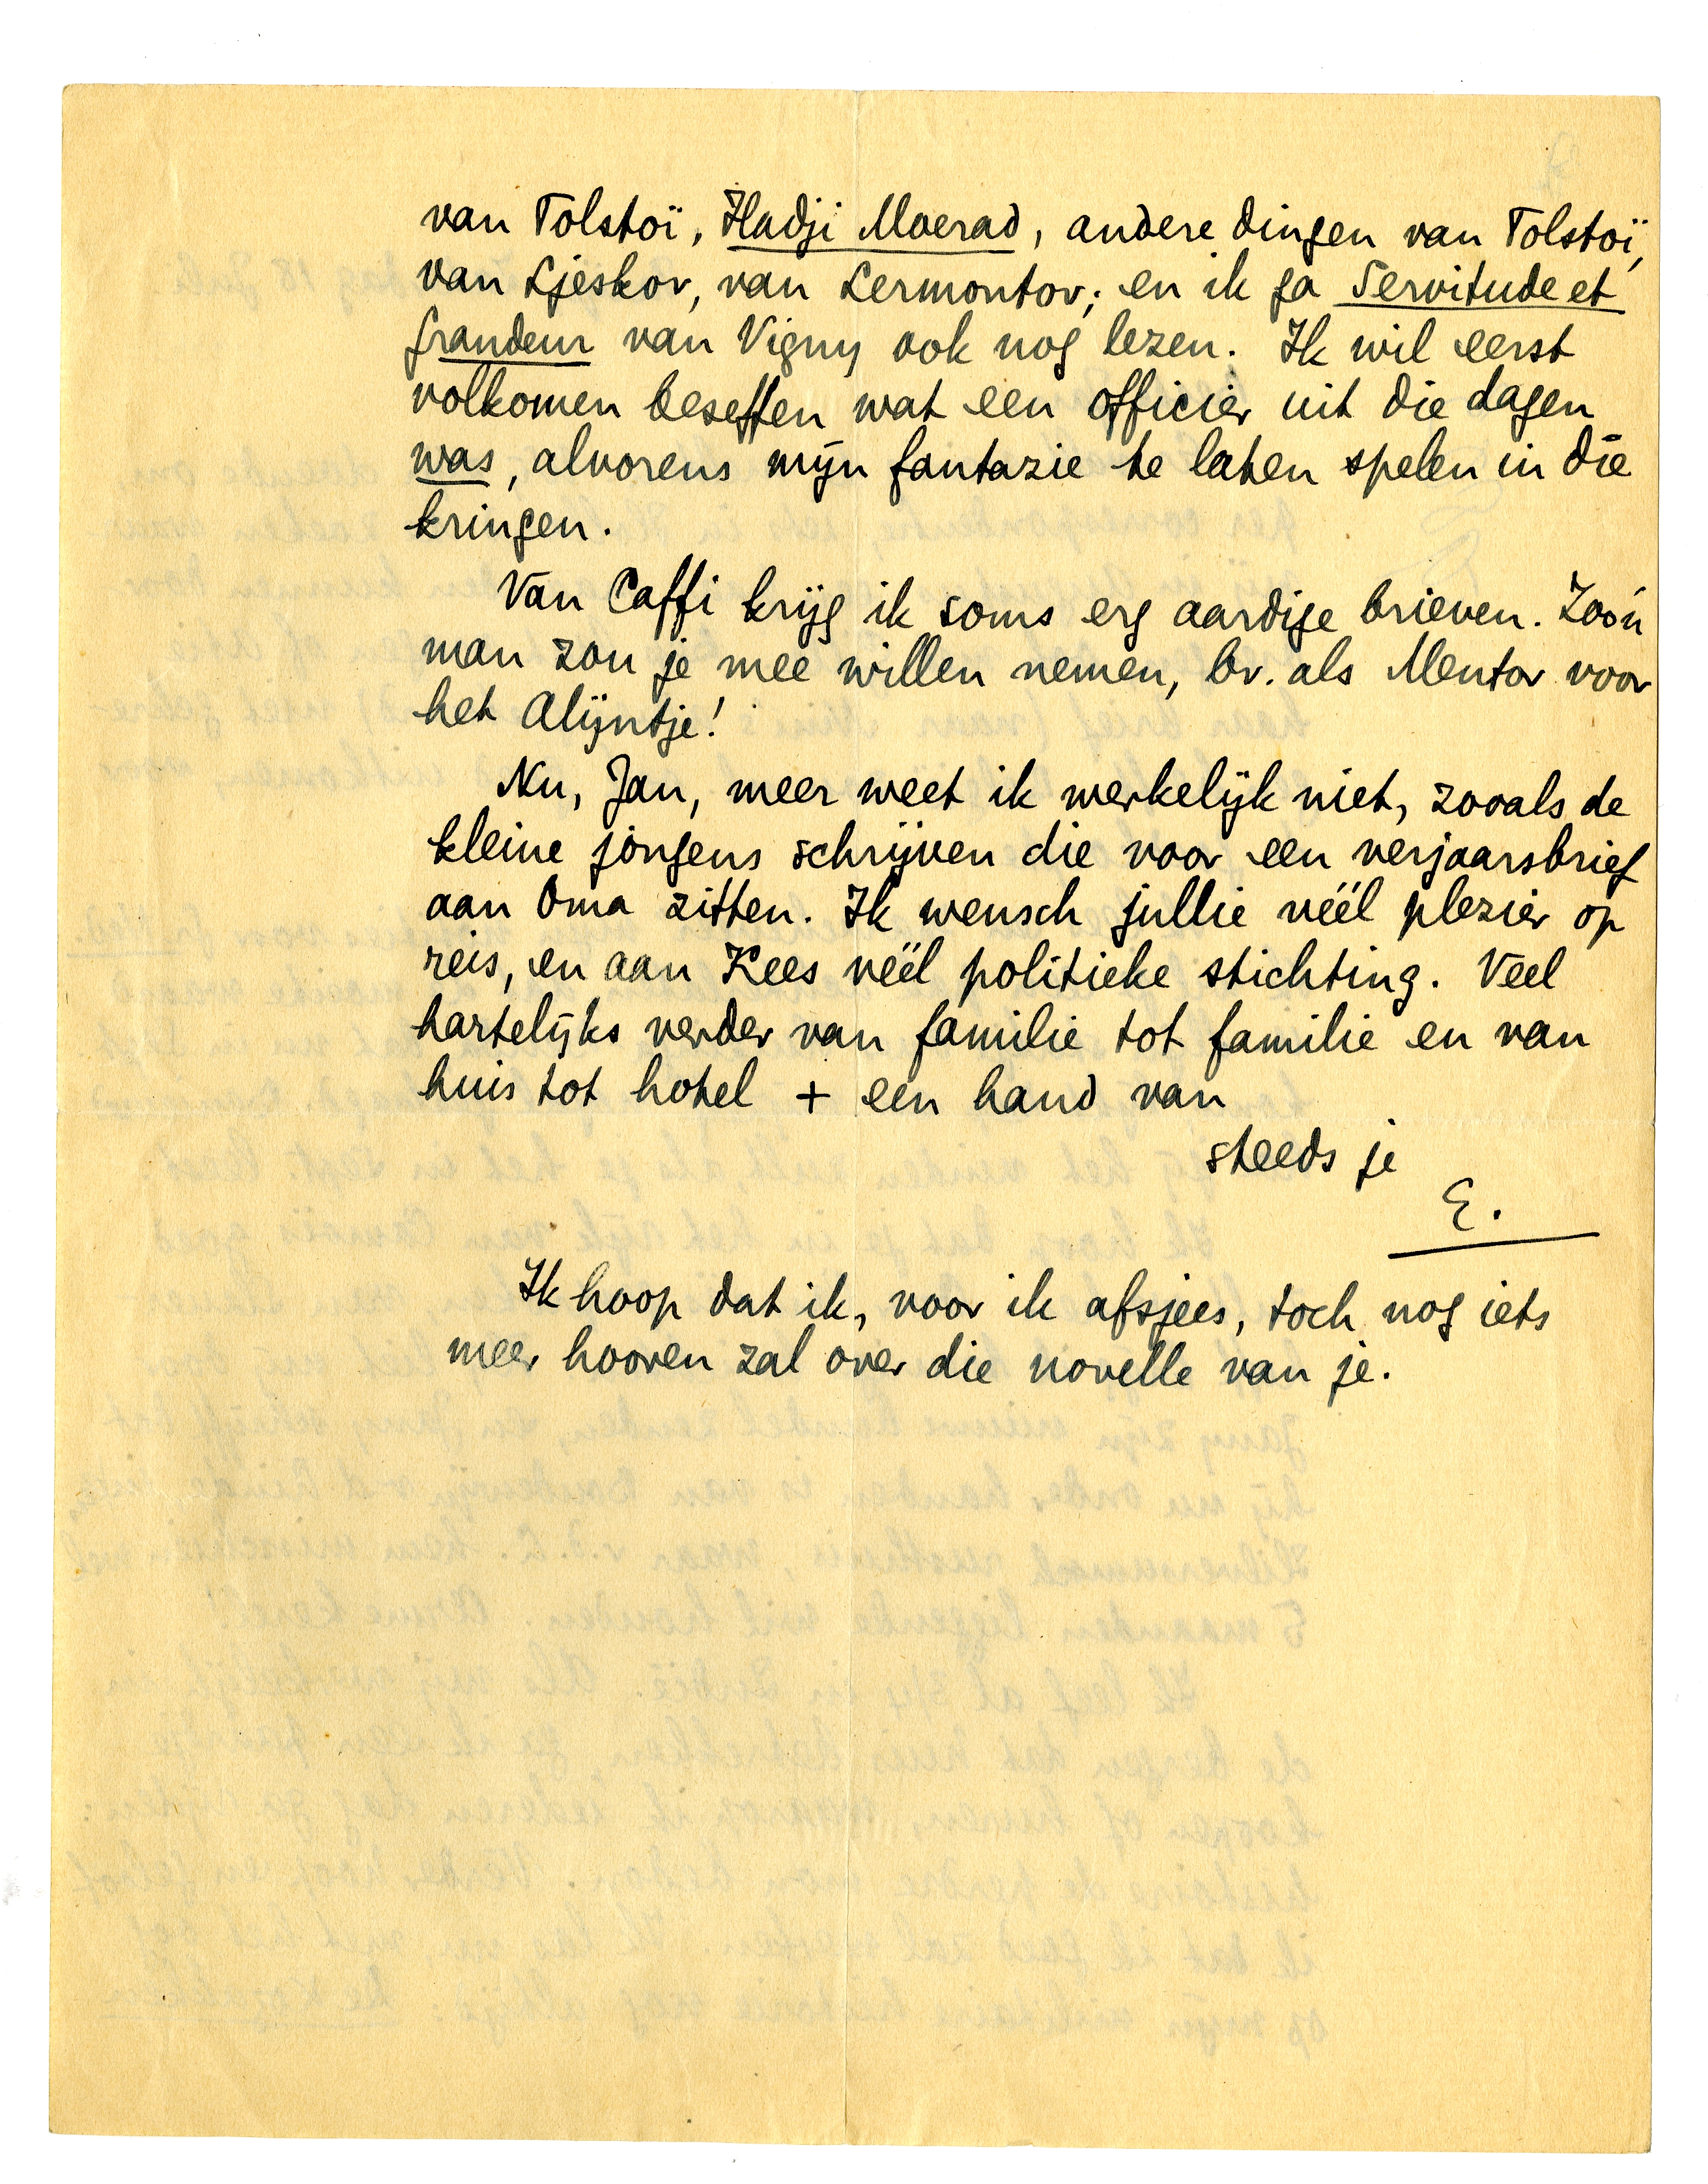 van Tolstoï, Hadji Moerad, andere dingen van Tolstoï,
van Ljeskov, van Lermontov; en ik ga Servitude et
grandeur van Vigny ook nog lezen. Ik wil eerst
volkomen beseffen wat een officier uit die dagen
was, alvorens mijn fantazie te laten spelen in die
kringen.
Van Caffi krijg ik soms erg aardige brieven. Zóó'n
man zou je mee willen nemen, bv. als Mentor voor
het Alijntje!
Nu, Jan, meer weet ik werkelijk niet, zooals de
kleine jongens schrijven die voor een verjaarsbrief
aan Oma zitten. Ik wensch jullie véél plezier op
reis, en aan Kees véél politieke stichting. Veel
hartelijks verder van familie tot familie en van
huis tot hotel + een hand van
steeds je
E.
Ik hoop dat ik, voor ik afsjees, toch nog iets
meer hooren zal over die novelle van je.